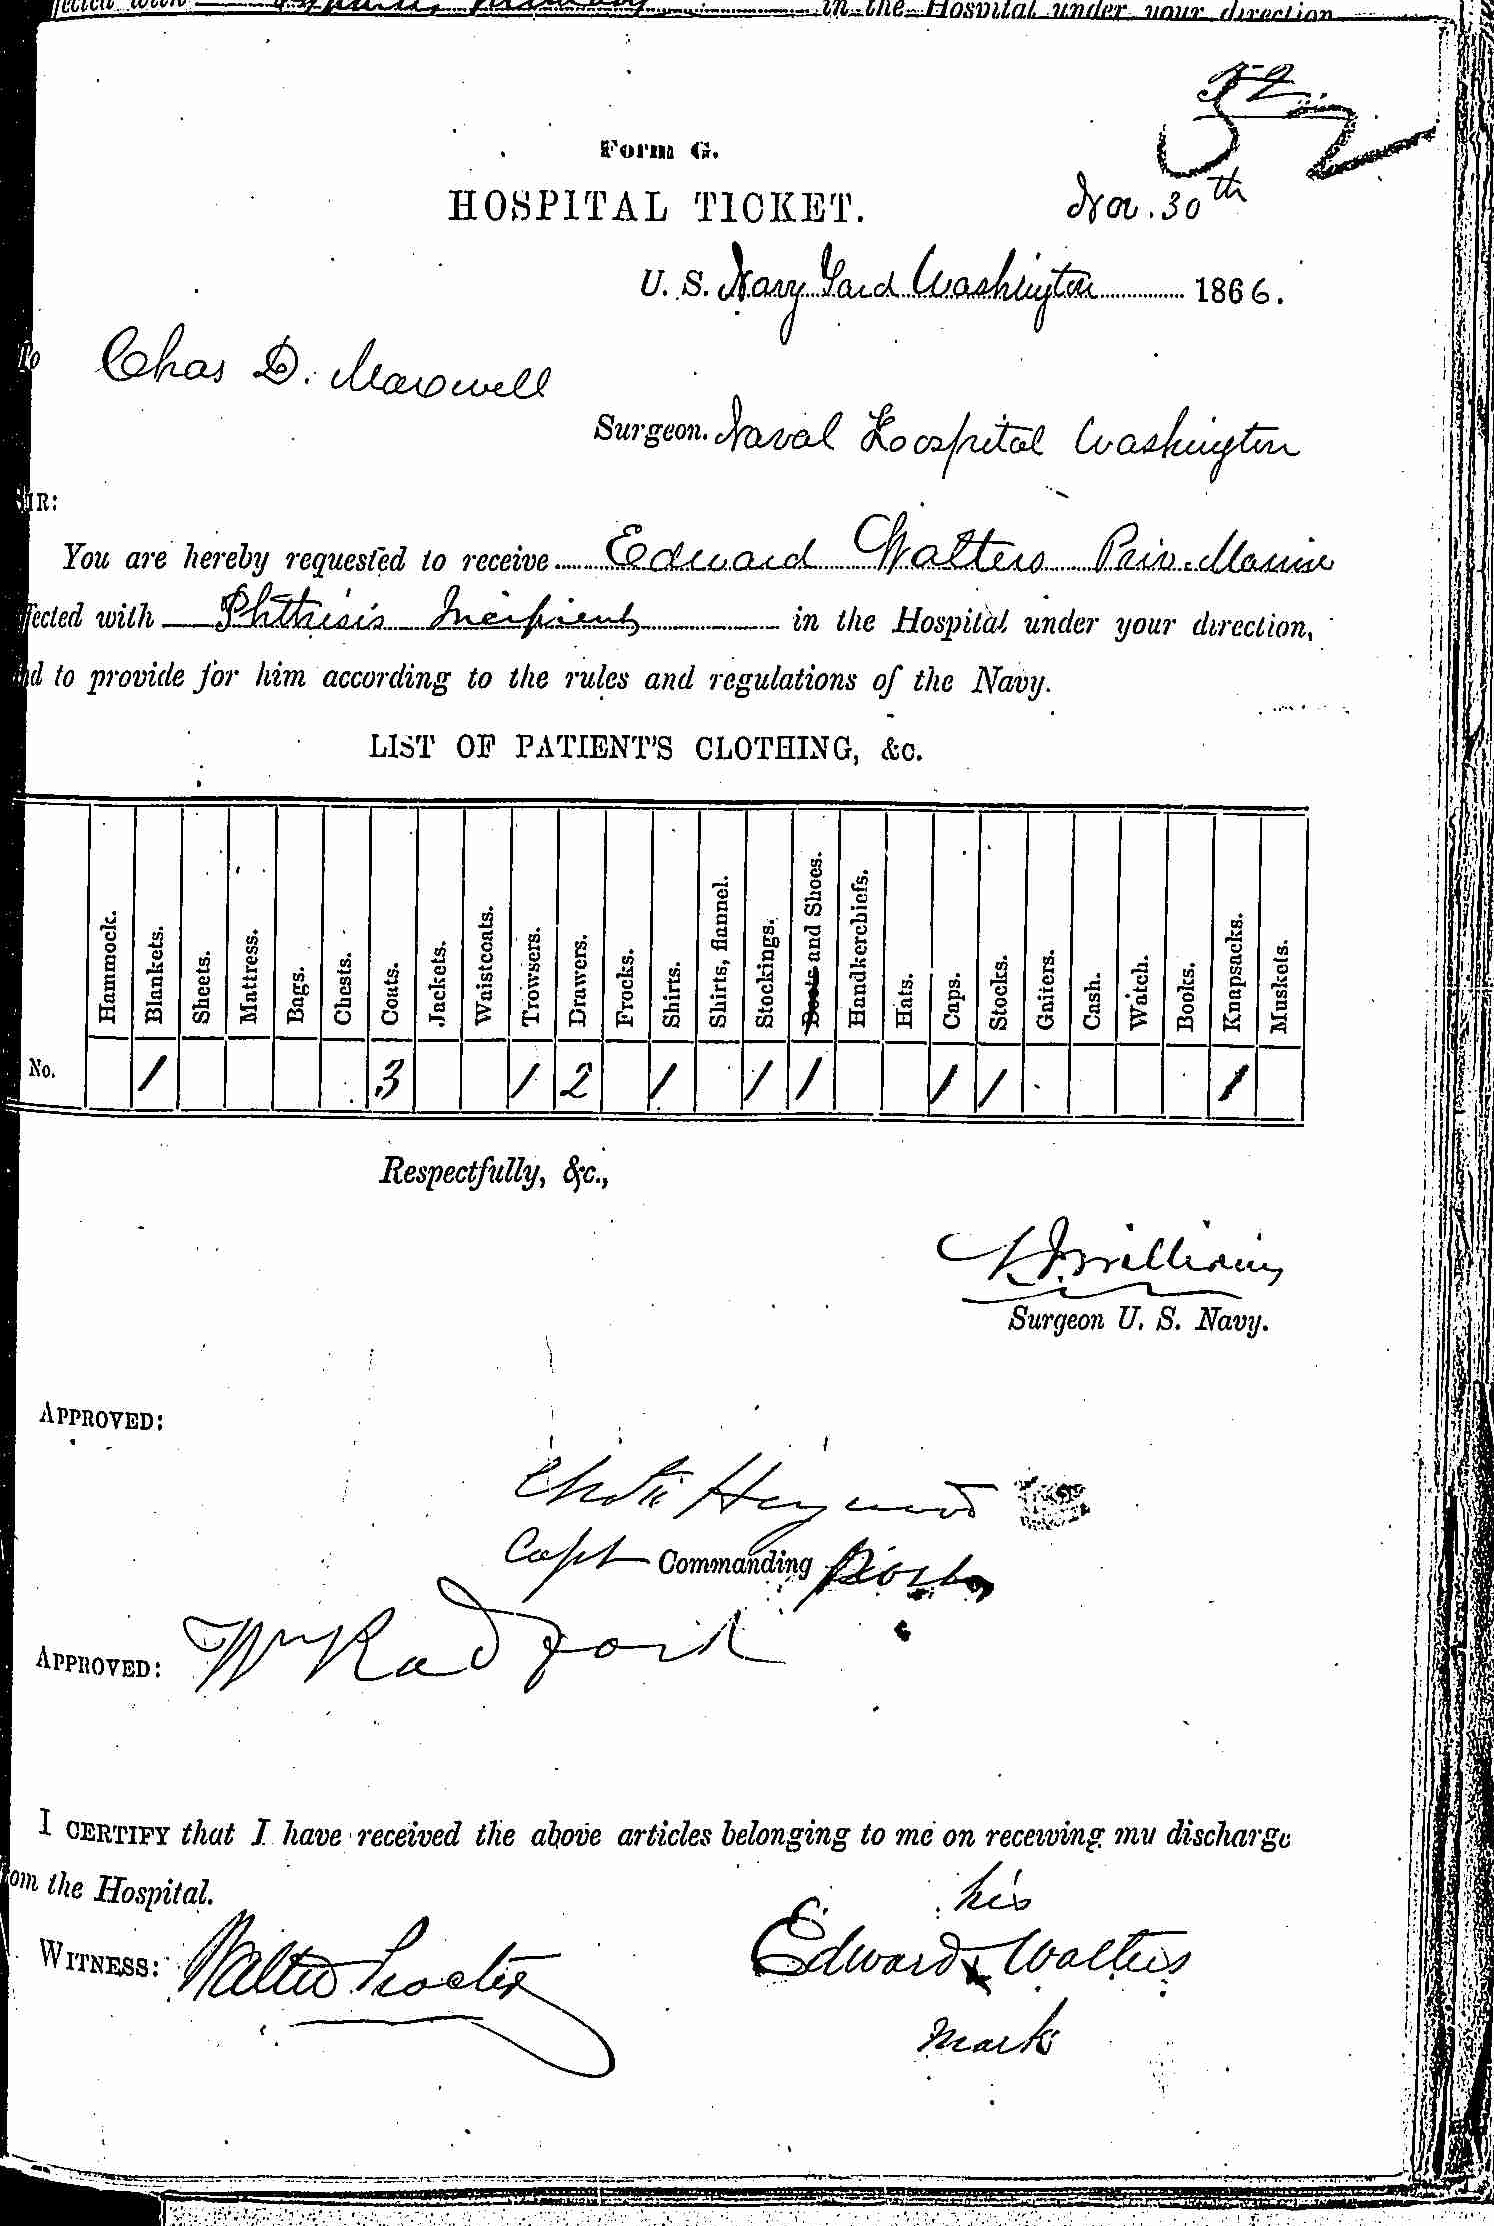 in the Hospital under your direction
52
52
Form G.
HOSPITAL TICKET.
Nov. 30th
U. S. Navy Yard Washington 1866.
To Chas D. Maxwell
Surgeon. Naval Hospital Washington
SIR:
You are hereby requested to receive Edward Walters Priv. Marine
fected with Phthisis Incipient in the Hospital under your direction,
d to provide for him according to the rules and regulations of the Navy.
LIST OF PATIENT'S CLOTHING, &c.
Hammock. Blankets. Sheets. Mattress. Bags. Chests. Coats. Jackets. Waistcoats. Trowsers. Drawers. Frocks. Shirts. Shirts, flannel. Stockings. Boots and Shoes. Handkerchiefs. Hats. Caps. Stocks. Gaiters. Cash. Watch. Books. Knapsacks. Muskets.
No. 1 3 1 2 1 1 1 1 1 1
Respectfully, &c.,
Surgeon U. S. Navy.
APPROVED:
Heywood
Capt Commanding Post
APPROVED: Wm Radford
I CERTIFY that I have received the above articles belonging to me on receiving my discharge
om the Hospital.
his
WITNESS: Walter Edward x Walters
mark